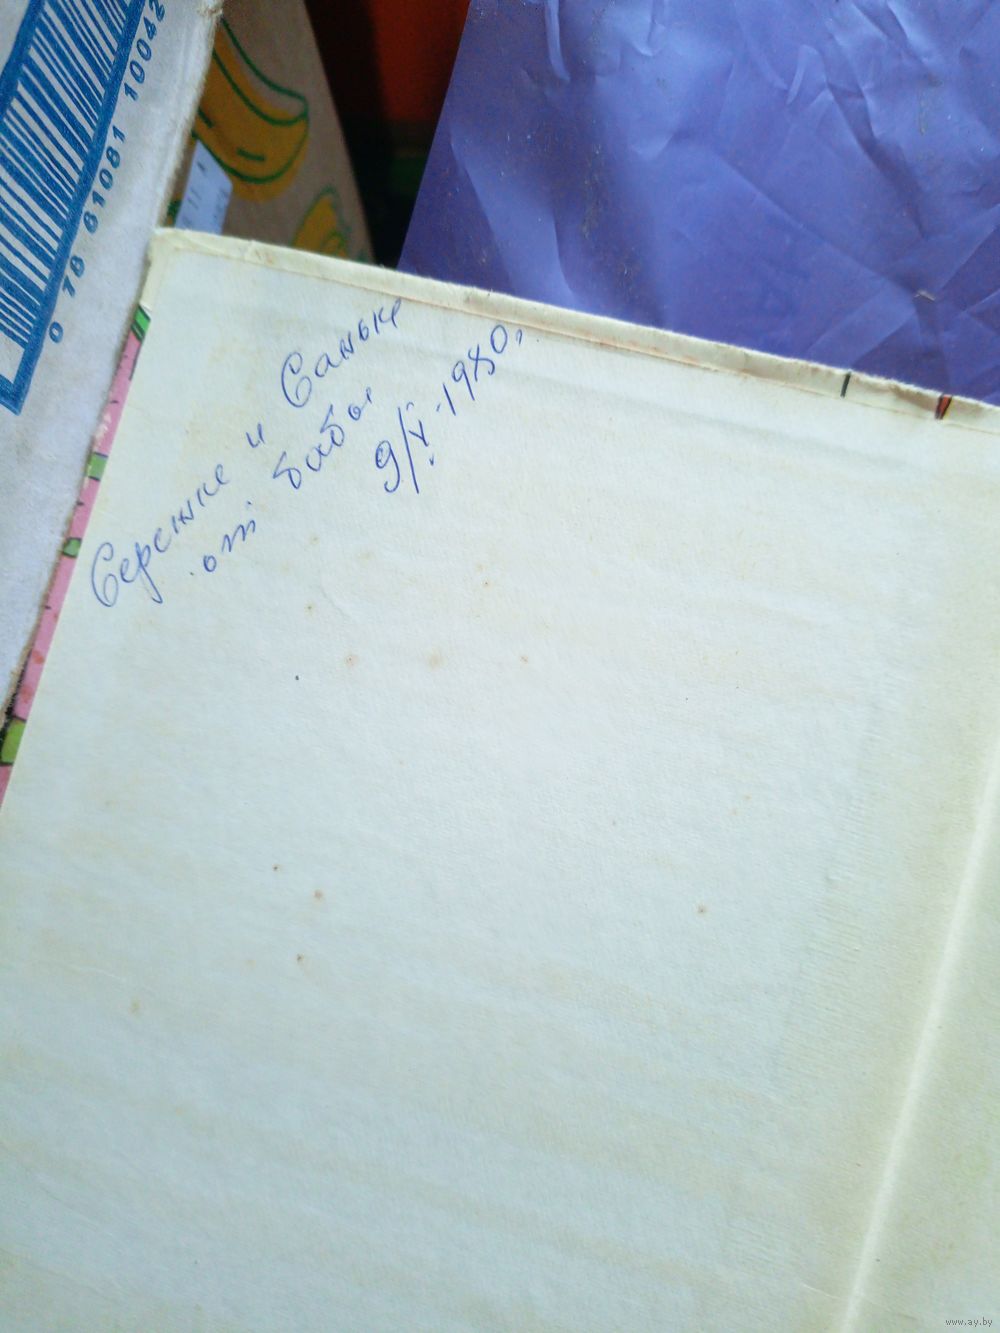 0 78 81081 10042
Сережке и Саньке
от бабы
9/V.-1980,
www.ay.by